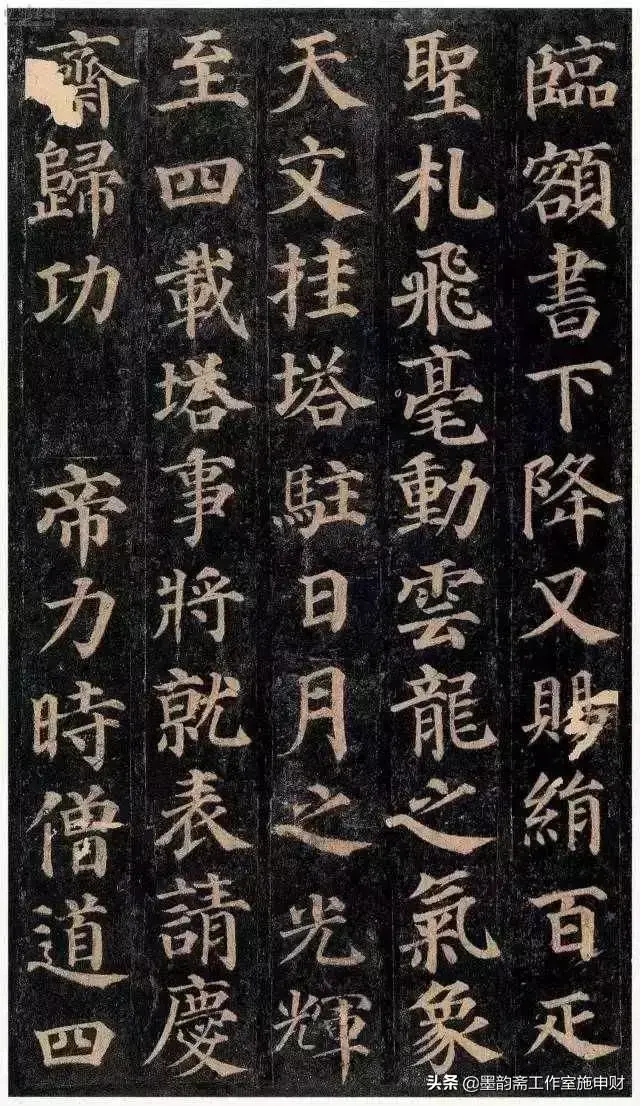 臨額書下降又賜絹百疋
聖札飛毫動雲龍之氣象
天文挂塔駐日月之光輝
至四載塔事將就表請慶
齋歸功 帝力時僧道四
头条 @墨韵斋工作室施申财